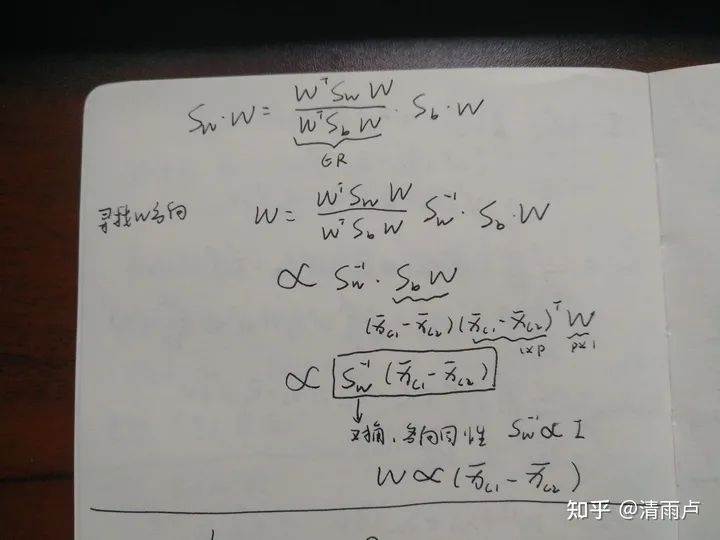 S_w · W = \frac{W^T S_w W}{W^T S_b W} · S_b · W
∈ R
寻找W方向 W = \frac{W^T S_w W}{W^T S_b W} S_w^{-1} · S_b · W
∝ S_w^{-1} · S_b W
(x̄_{c1} - x̄_{c2}) (x̄_{c1} - x̄_{c2})^T W
1×p p×1
∝ S_w^{-1} (x̄_{c1} - x̄_{c2})
对角、各向同性 S_w^{-1} ∝ I
W ∝ (x̄_{c1} - x̄_{c2})
知乎 @清雨卢